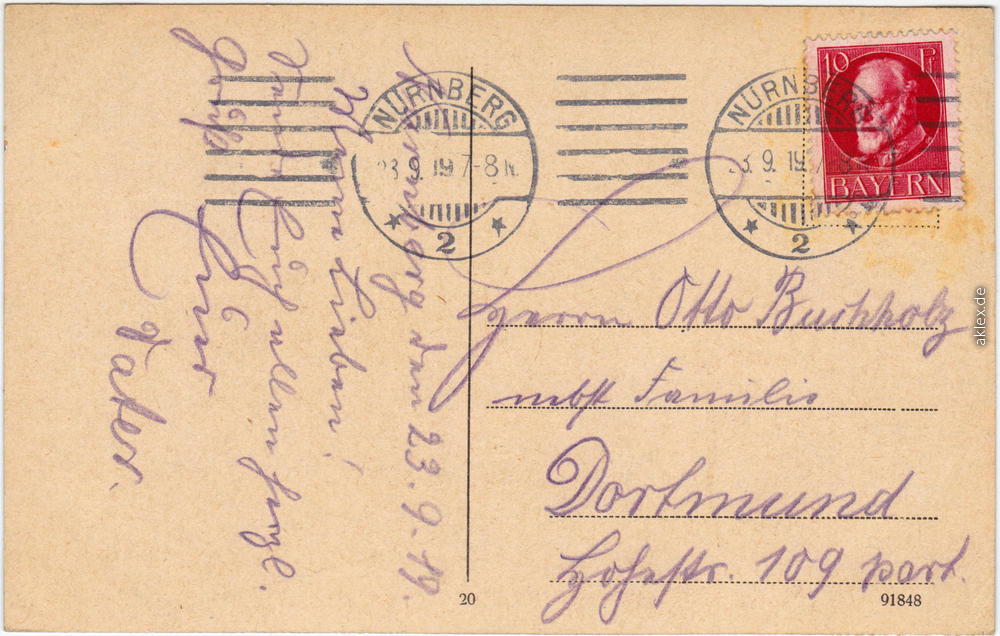 Nürnberg den 23.9.19.
Ihr Lieben!
Sende Euch allen herzl.
Grüße
Euer
Vater.
NÜRNBERG
23.9.19 7-8 N.
2
NÜRNBERG
23.9.19 7-8 N.
2
10 Pf
BAYERN
Herrn Otto Buchholz
nebst Familie
Dortmund
Hohestr. 109 part.
20
91848
aklex.de